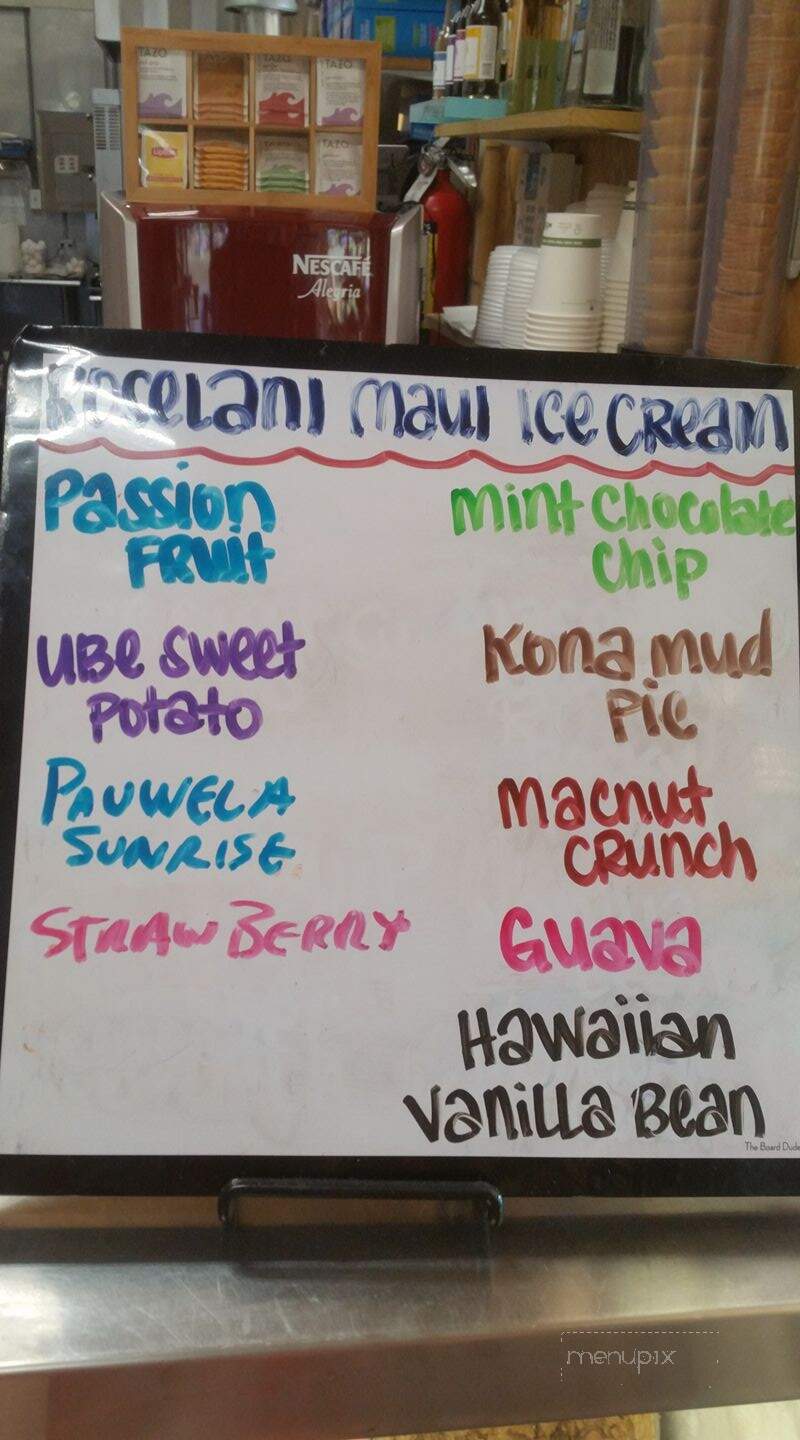 TAZO TAZO TAZO TAZO
Lipton
NESCAFÉ
Alegria
Roselani Maui Ice Cream
Passion
Fruit
Ube Sweet
Potato
Pauwela
Sunrise
Strawberry
Mint Chocolate
Chip
Kona Mud
Pie
Macnut
Crunch
Guava
Hawaiian
Vanilla Bean
The Board Dude
menupix